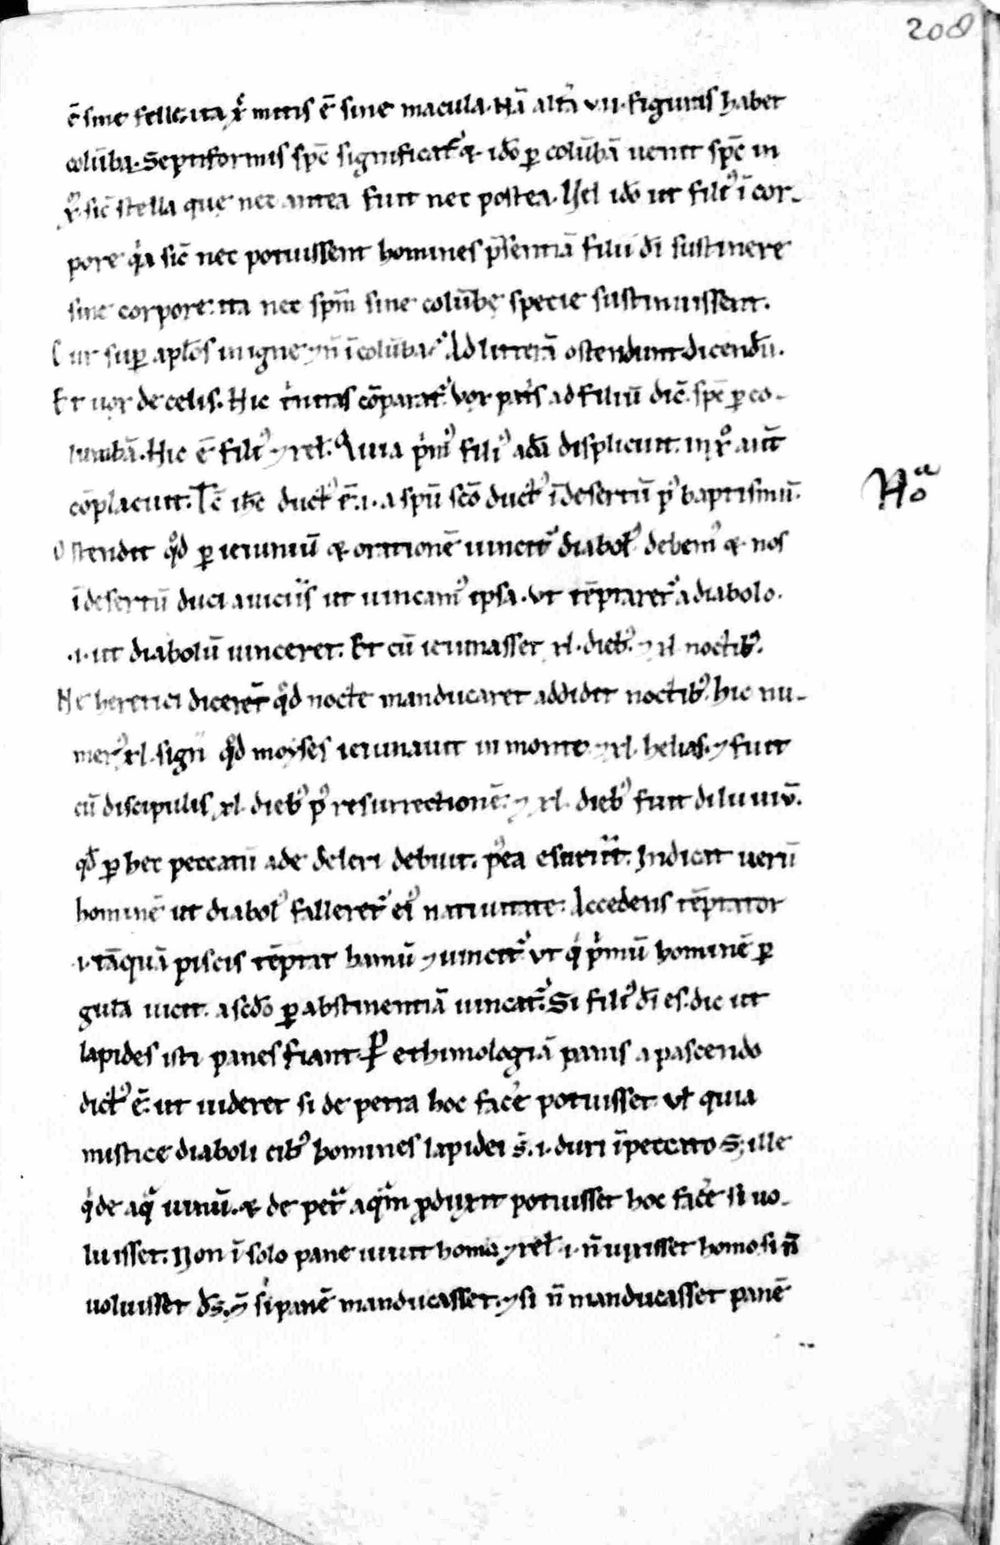 208
ē sine felle. ita xp̄ mitis ē sine macula. Nā altā vii. figuras habet
colūba. Septiformis sp̄c significat᷑ & idō p̱ colūbā uenit sp̄c in
xp̄. sic̄ stella que nec antea fuit nec postea. Vel idō ut filiꝰ ī cor-
pore qͥa sic̄ nec potuissent homines p̄sentiā filii dī sustinere
sine corpore. ita nec sp̄m sine colūbę specie sustinuissent.
Cur sup̱ apl̄os in igne ⁊ n̄ ī colūba. Ad litterā ostendunt dicendū.
Et uox de celis. Hic tͥnitas cōparat᷑ vox pat̄s ad filiū dic̄. sp̄c p̱ co-
lumbā. Hic ē filiꝰ ⁊ rel̄. Quia pͥmꝰ filiꝰ adā displicuit. in xp̄o aūt
cōplacuit. Tc̄ ih̄c ductꝰ ē .i. a spū sc̄o ductꝰ ī desertū pꝰ baptismū.
Noᵃ
Ostendit qͦd p̱ ieiuniū & orationē uincit᷑ diabolꝰ debemꝰ & nos
ī desertū duci a uiciis ut uincamꝰ ipsa. Vt tēptaret᷑ a diabolo.
.i. ut diabolū uinceret. Et cū ieiunasset xl. diebꝰ. ⁊ xl noctibꝰ.
Ne heretici dicerēt qͦd nocte manducaret addidit noctibꝰ. hic nu-
merꝰ xl. sign̄ qͦd moyses ieiunauit in monte ⁊ xl. helias. ⁊ fuit
cū discipulis xl. diebꝰ pꝰ resurrectionē. ⁊ xl. diebꝰ fuit diluuiū.
qd̄ p̱ hec peccatū ade deleri debuit. pꝰea esuriit. Indicat uerū
hominē ut diabolꝰ falleret᷑ eiꝰ natiuitate. Accedens tēptator
.i. tāquā piscis tēptat hamū ⁊ uincit᷑ ut qͥ pͥmū hominē p̱
gulā uicit. a sc̄do p̱ abstinentiā uincat᷑. Si filiꝰ dī es. dic ut
lapides isti panes fiant. P̱ ethimologiā panis a pascendo
dictꝰ ē. ut uideret si de petra hoc fac̄e potuisset. vl̄ quia
mistice diaboli cibꝰ homines lapidei s̄. i. duri ī peccato. S; ille
qͥ de aq̄ uinū. & de pet̄ aq̄m p̱duxit potuisset hoc fac̄e si uo-
luisset. Non ī solo pane uiuit homo ⁊ rel̄. i. n̄ uixisset homo si n̄
uoluisset ds̄. ⁊ si panē manducasset. ⁊ si n̄ manducasset panē